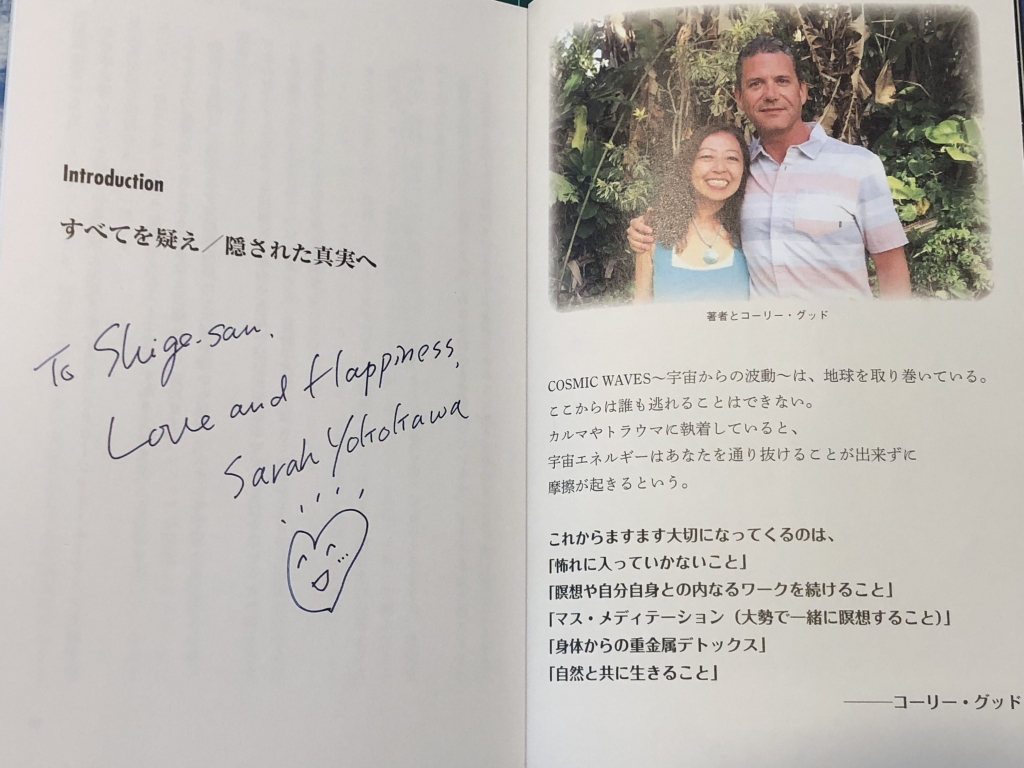 Introduction
すべてを疑え／隠された真実へ
To Shige-san.
Love and Happiness,
Sarah Yokokawa
著者とコーリー・グッド
COSMIC WAVES〜宇宙からの波動〜は、地球を取り巻いている。
ここからは誰も逃れることはできない。
カルマやトラウマに執着していると、
宇宙エネルギーはあなたを通り抜けることが出来ずに
摩擦が起きるという。
これからますます大切になってくるのは、
「怖れに入っていかないこと」
「瞑想や自分自身との内なるワークを続けること」
「マス・メディテーション（大勢で一緒に瞑想すること）」
「身体からの重金属デトックス」
「自然と共に生きること」
―――コーリー・グッド